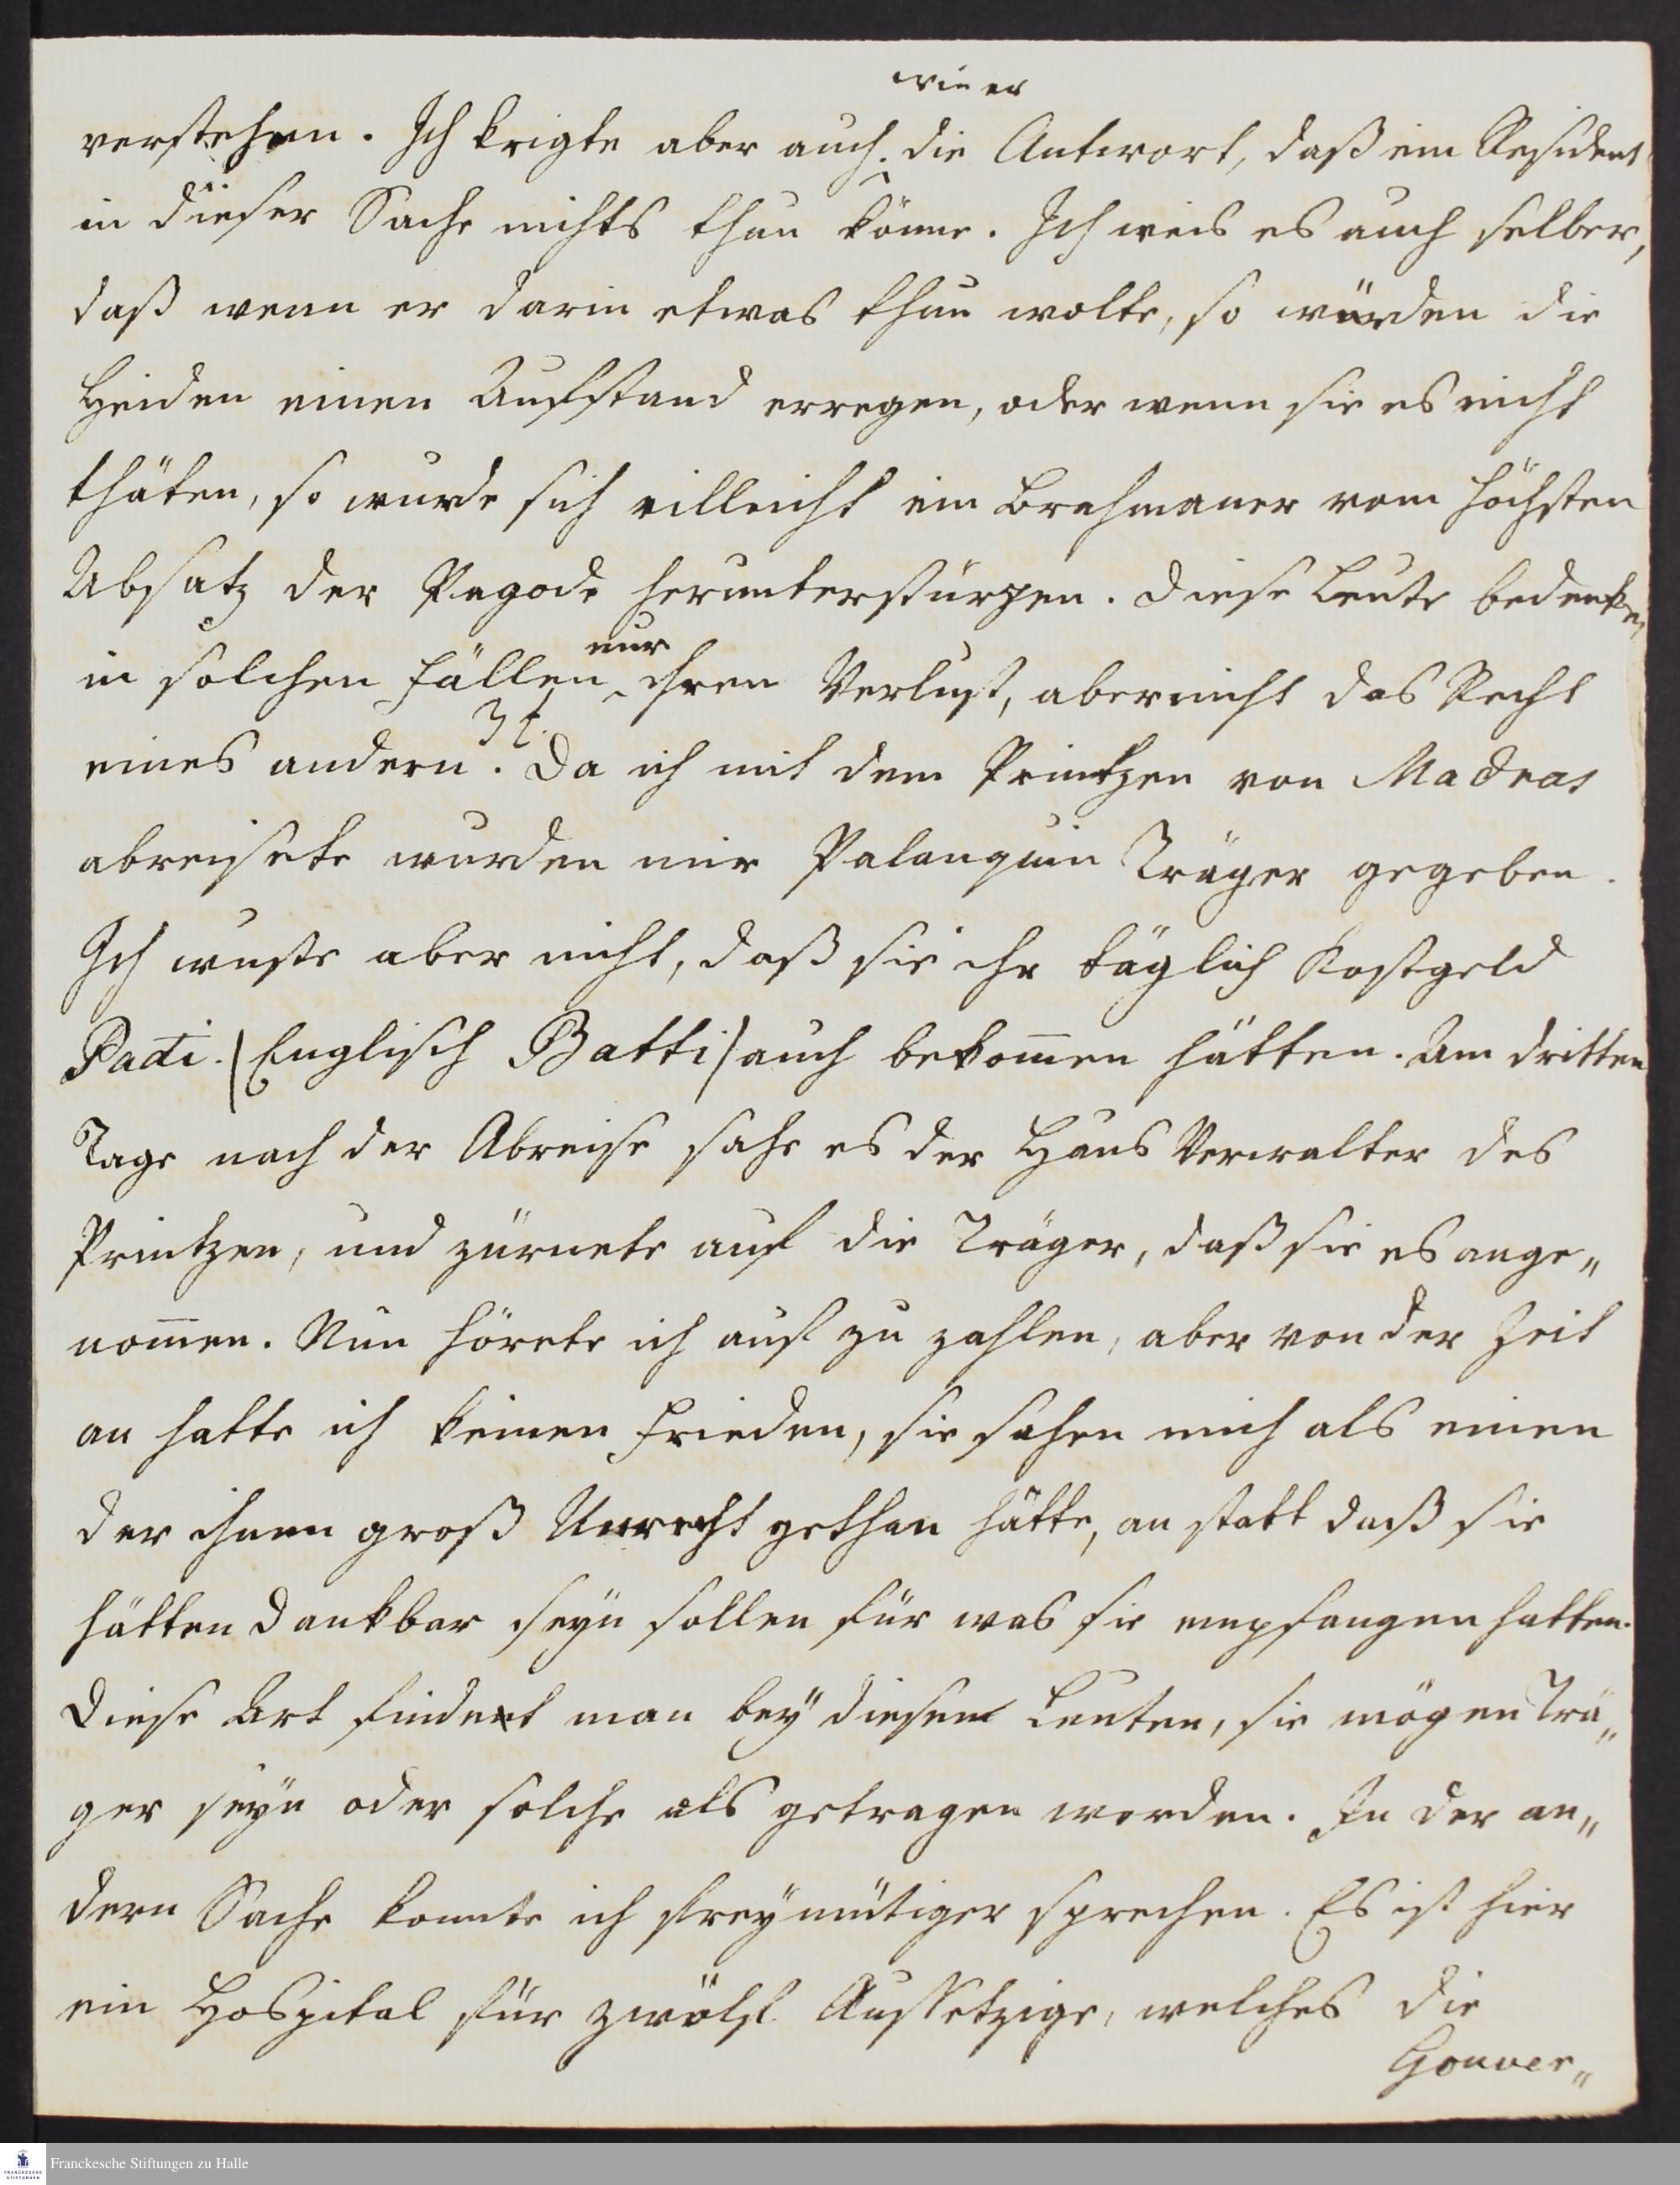 wie er
verstehen. Ich krigte aber auch die Antwort, daß ein Resident
in dieser Sache nichts thun könne. Ich weis es auch selber,
daß wenn er darin etwas thun wolte, so würden die
Heiden einen Aufstand erregen, oder wenn sie es nicht
thäten, so wurde sich villeicht ein Brahmaner vom höchsten
Absatz der Pagode herunterstürzen. Diese Leute bedenken
in solchen Fällen nur ihren Verlust, aber nicht das Recht
eines andern. Da ich mit dem Printzen von Madras
abreisete wurden mir Palanquin Träger gegeben.
Ich wuste aber nicht, daß sie ihr täglich Kostgeld
Padi. (Englisch Batti) auch bekom̅en hätten. Am dritten
Tage nach der Abreise sahe es der Haus Verwalter des
Printzen, und zürnete auf die Träger, daß sie es ange„
nom̅en. Nun hörete ich auf zu zahlen, aber von der Zeit
an hatte ich keinen Frieden, sie sahen mich als einen
der ihnen groß Unrecht gethan hätte, an statt daß sie
hätten dankbar seyn sollen für was sie empfangen hatten.
Diese Art findet man bey diesen Leuten, sie mögen Trä„
ger seyn oder solche als getragen werden. In der an„
dern Sache konnte ich freymütiger sprechen. Es ist hier
ein Hospital für zwölf Aussetzige, welches die
Gouver„
Franckesche Stiftungen zu Halle